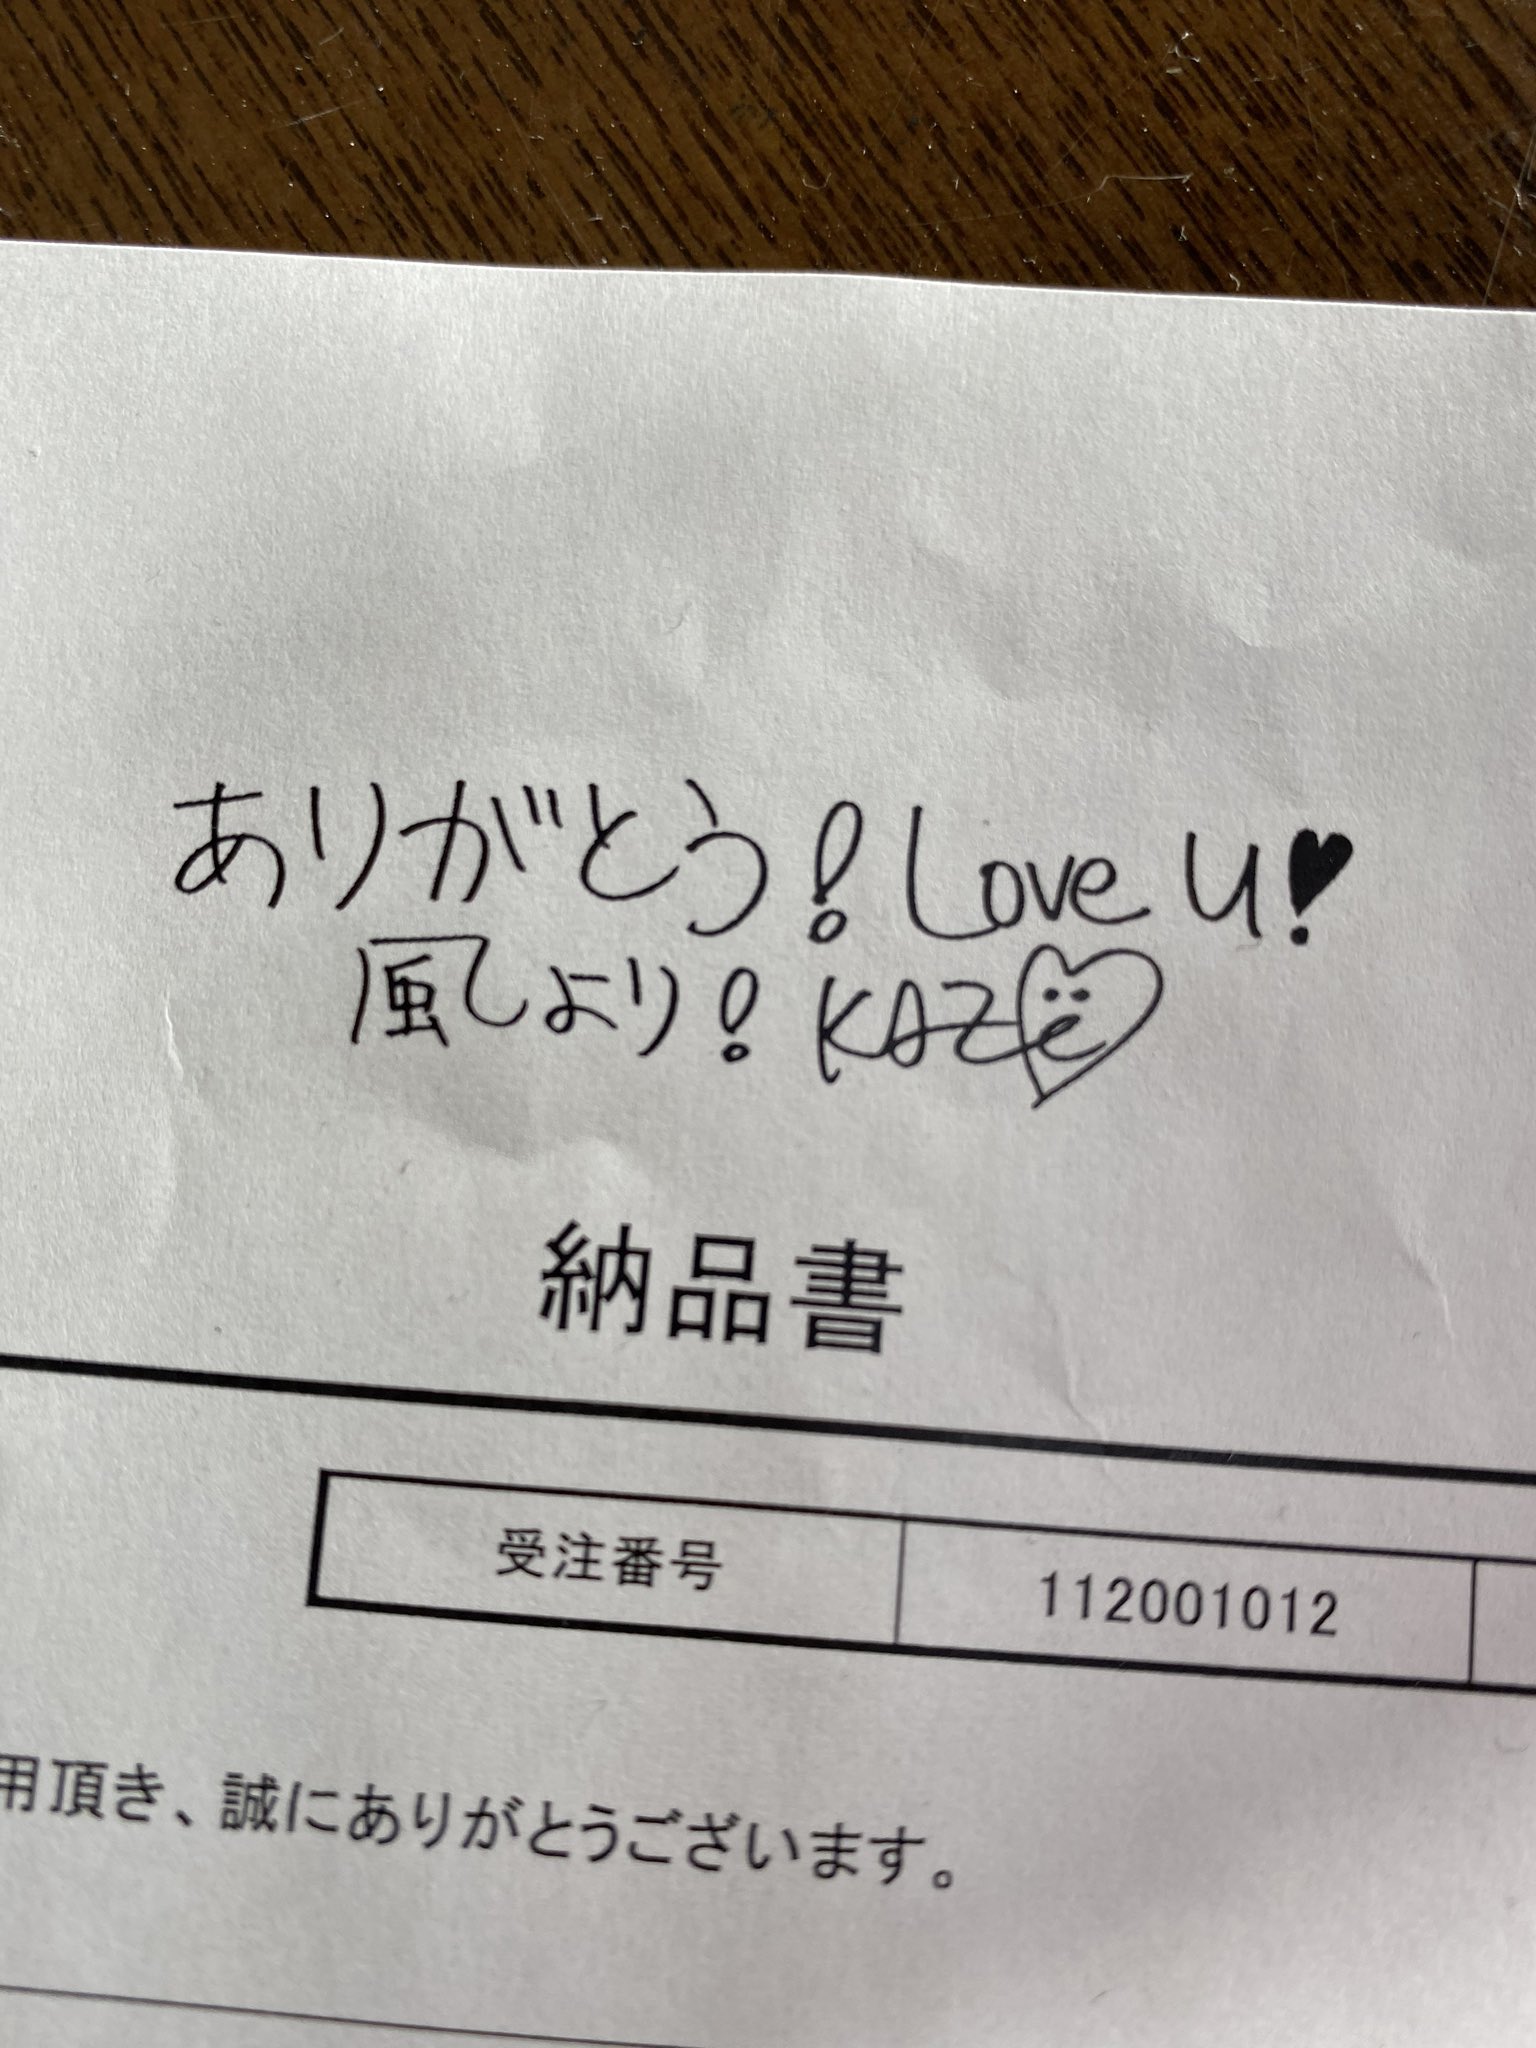 ありがとう！Love u!
風より！KAZe
納品書
受注番号 112001012
用頂き、誠にありがとうございます。